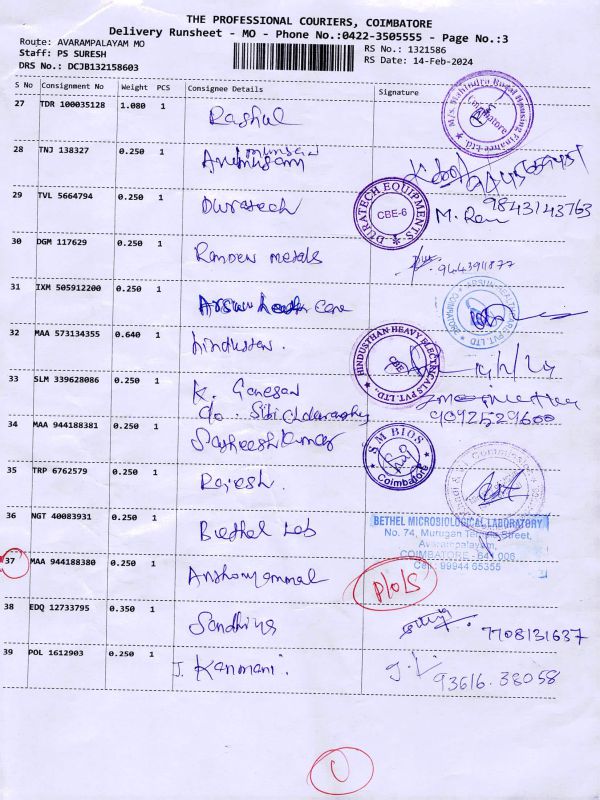 THE PROFESSIONAL COURIERS, COIMBATORE
Delivery Runsheet - MO - Phone No.:0422-3505555 - Page No.:3
Route: AVARAMPALAYAM MO
Staff: PS SURESH
DRS No.: DCJB132158603
RS No.: 1321586
RS Date: 14-Feb-2024
S No Consignment No Weight PCS Consignee Details Signature
27 TDR 100035128 1.080 1 Rashul
M/s Mahindra Rural Housing Finance Ltd Coimbatore
28 TNJ 138327 0.250 1
29 TVL 5664794 0.250 1 Duratech
DURATECH EQUIPMENTS CBE-6
M. Ravi 9843143763
30 DGM 117629 0.250 1 metals
9443911877
31 IXM 505912200 0.250 1 care
32 MAA 573134355 0.640 1 hindustan.
HINDUSTHAN HEAVY ELECTRICALS PVT. LTD CBE
14/2/24
33 SLM 339628086 0.250 1 K. Ganesan
c/o. Sibi
9092529600
34 MAA 944188381 0.250 1 Satheeshkumar
S M BIOS Coimbatore
35 TRP 6762579 0.250 1 Rajesh.
36 NGT 40083931 0.250 1 Biethel Lab
BETHEL MICROBIOLOGICAL LABORATORY
No. 74, Murugan Temple Street,
Avarampalayam,
COIMBATORE - 641 006.
Cell : 99944 65355
37 MAA 944188380 0.250 1 Anthonyammal
38 EDQ 12733795 0.350 1 Sandhiya
7708131637
39 POL 1612903 0.250 1 J. Kanmani.
93616.38058